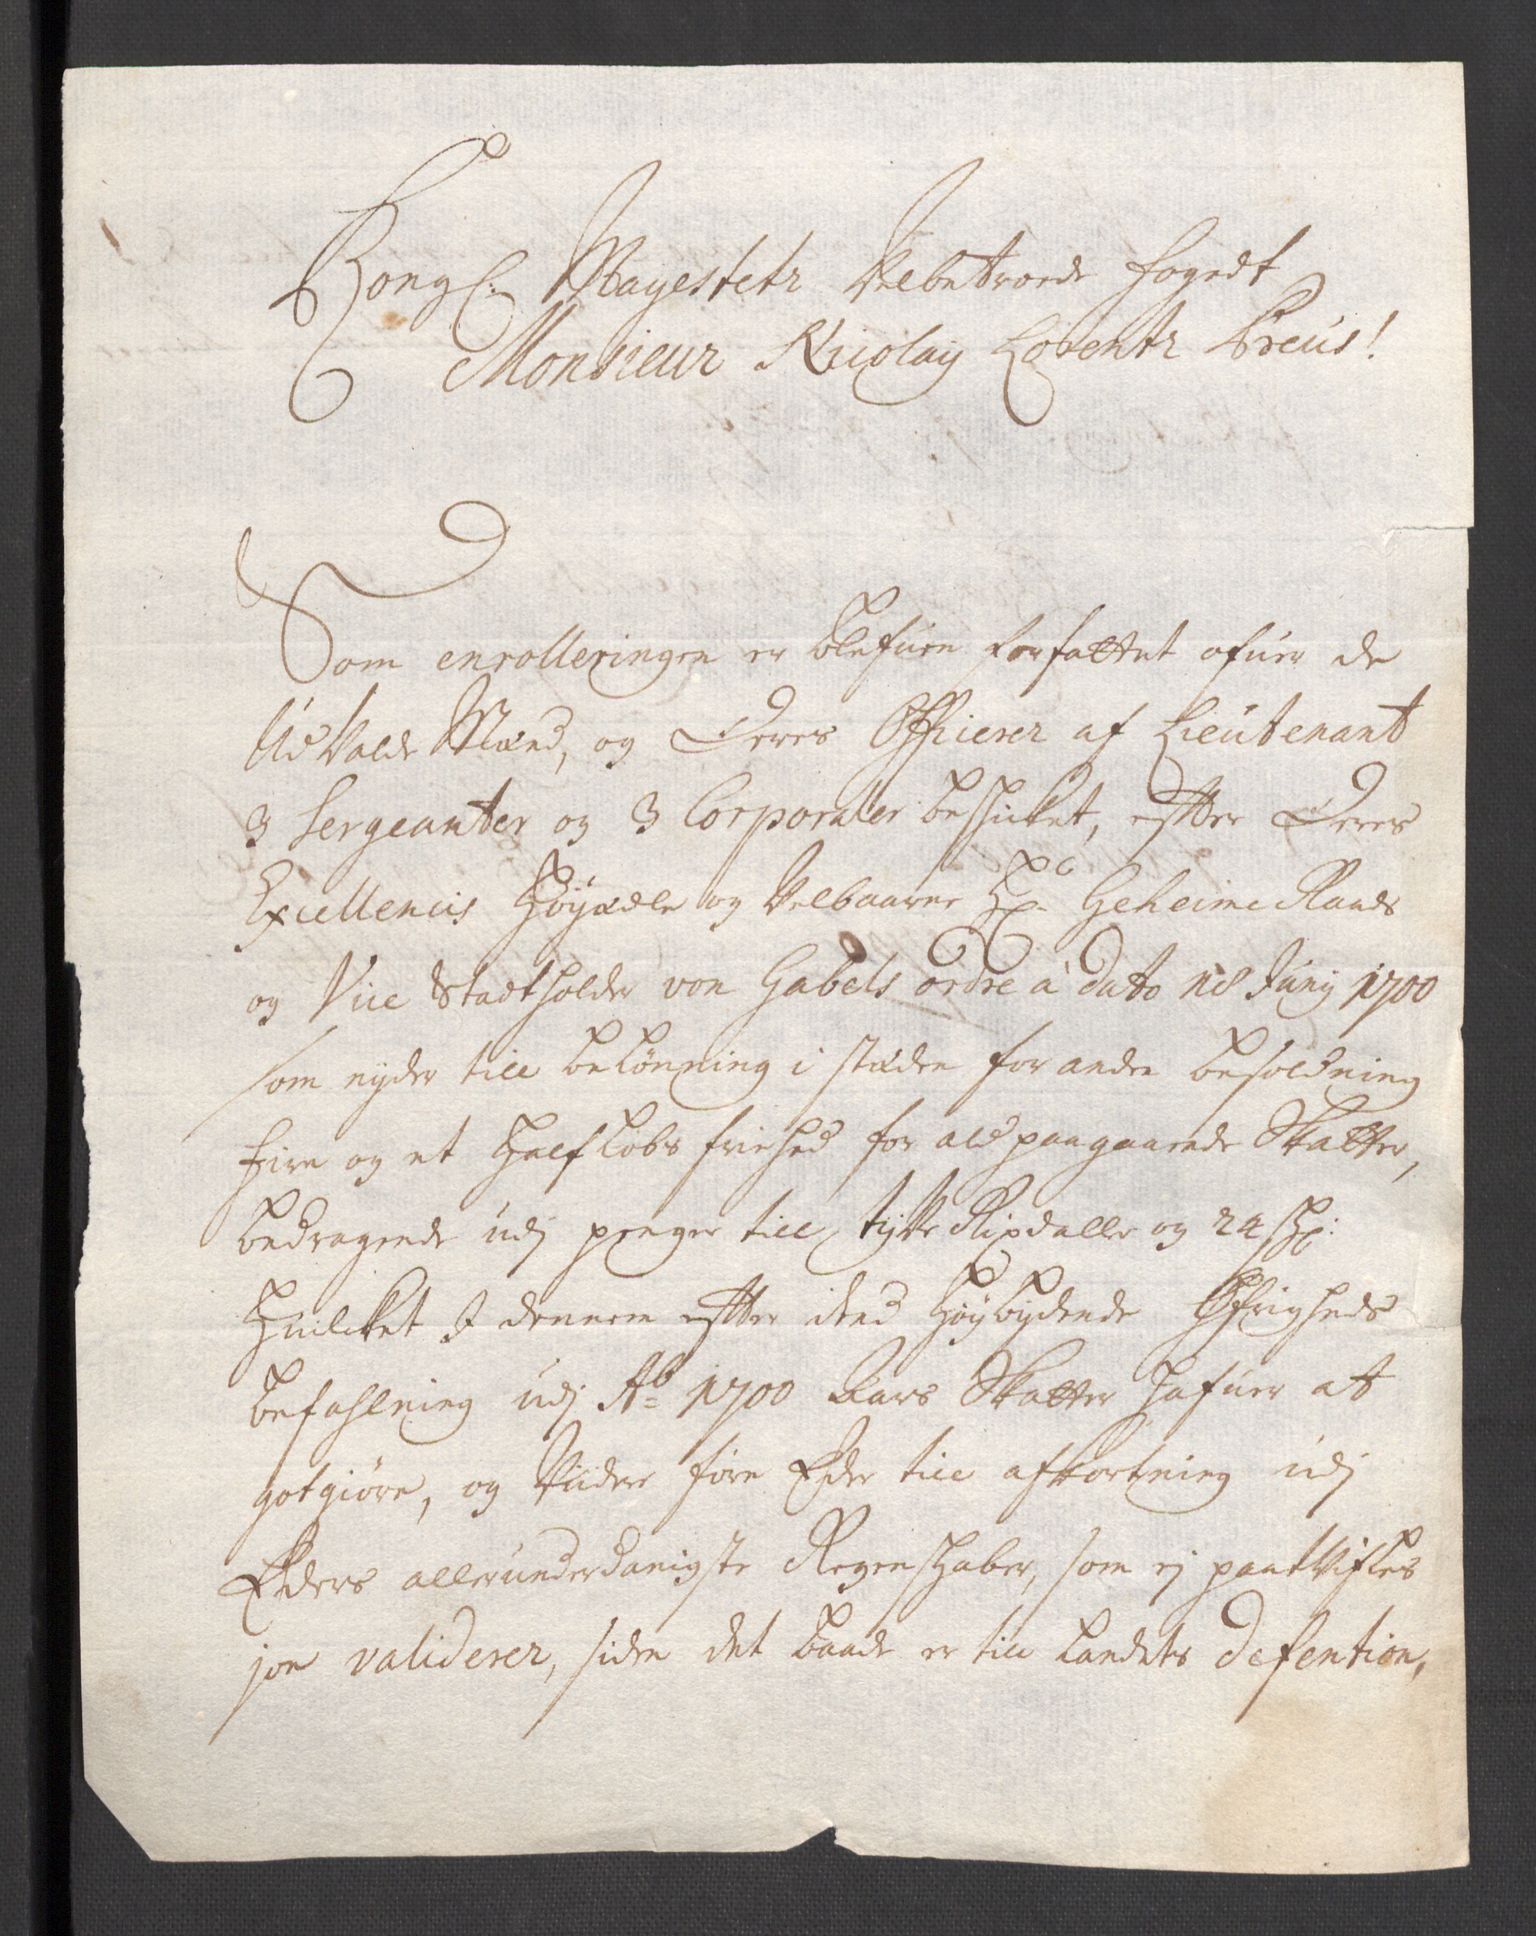 Kongl: Mayestetz Velbetroede fogedt
Monsieur Nicolay Lorentz Preus!
Som enrolleringen er blefuen forfattet ofuer de
Udvalde Mænd, og Deres Officerer af Lieutenant
3 Sergeanter og 3 Corporaler beskicket, efter Deres
Excellencis Høyædle og Velbaarne Hr. Geheime Raads
og Vice Stadtholder von Gabels ordre a dato 18 Juny 1700
som nyder till belønning i stæden for anden besoldning
fire og et Half Løbs friehed for ald paagaaende Skatter,
bedragende udj penger till tytte Rixdaller og 24 sk:
Huilcket I dennem efter dend Høybydende Øfrigheds
befahlning udj Ao 1700 Aars Skatter hafuer att
gotgiøre, og Viidere føre Eder till afkortning udj
Eders allerunderdanigste Regenskaber, som ej paatvifles
joe validerer, siden det baade er till Landets Defention,